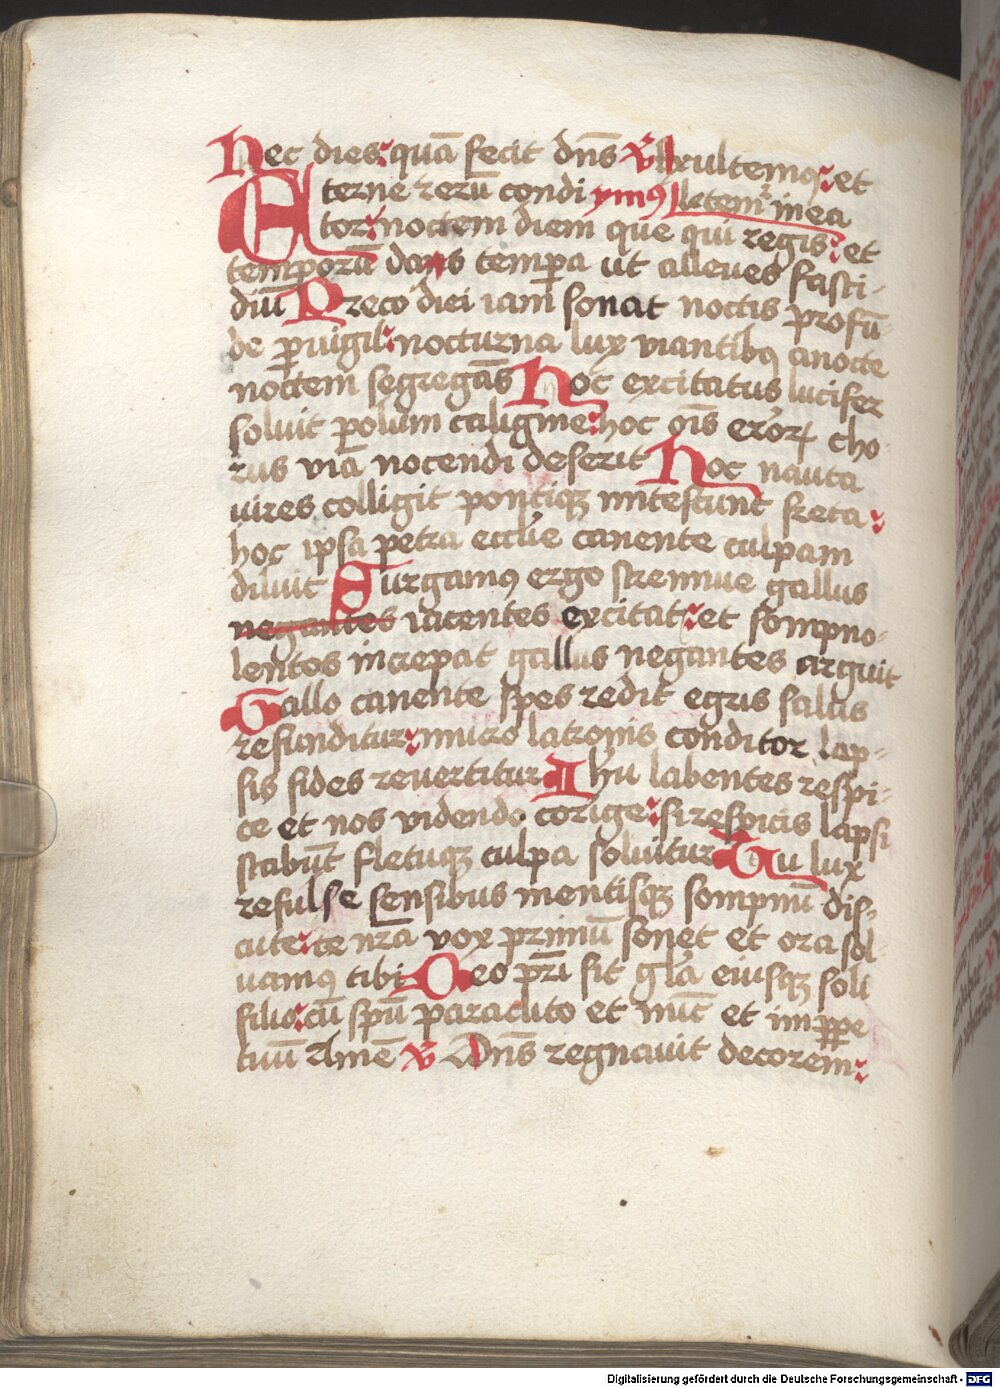 Hec dies quā fecit dn̄s v̄ Exultemꝯ et
Eterne rerū condi ymꝰ letemʳ in ea
tor noctem diem que qui regis et
temporū dans tempa ut alleues fasti-
diū Preco diei iam sonat noctis profū-
de puigil nocturna lux viantibꝯ anocte
noctem segregās Hoc excitatus lucifer
soluit polum caligine hoc oīs erorꝝ cho-
rus viā nocendi deserit Hoc nauta
uires colligit pontiqꝫ mitescunt freta
hoc ipsa petra eccl̄ie canente culpam
diluit Surgamꝯ ergo strennue gallus
negantes iacentes excitat et sompno-
lentos increpat gallus negantes arguit
Gallo canente spes redit egris salus
refunditur mucro latronis conditor lap-
sis fides reuertitur Ihū labentes respi-
ce et nos videndo corige si respicis lapsi
stabūt fletuqꝫ culpa soluitur Tu lux
refulse sensibus mentisqꝫ sompnū dis-
cute te nr̄a vox primū sonet et ora sol-
uamꝯ tibi Deo pr̄i sit gl̄a eiusqꝫ soli
filio cū spū paraclito et nūc et in ppe
tuū Amē v̄ Dn̄s regnauit decorem
Digitalisierung gefördert durch die Deutsche Forschungsgemeinschaft - DFG